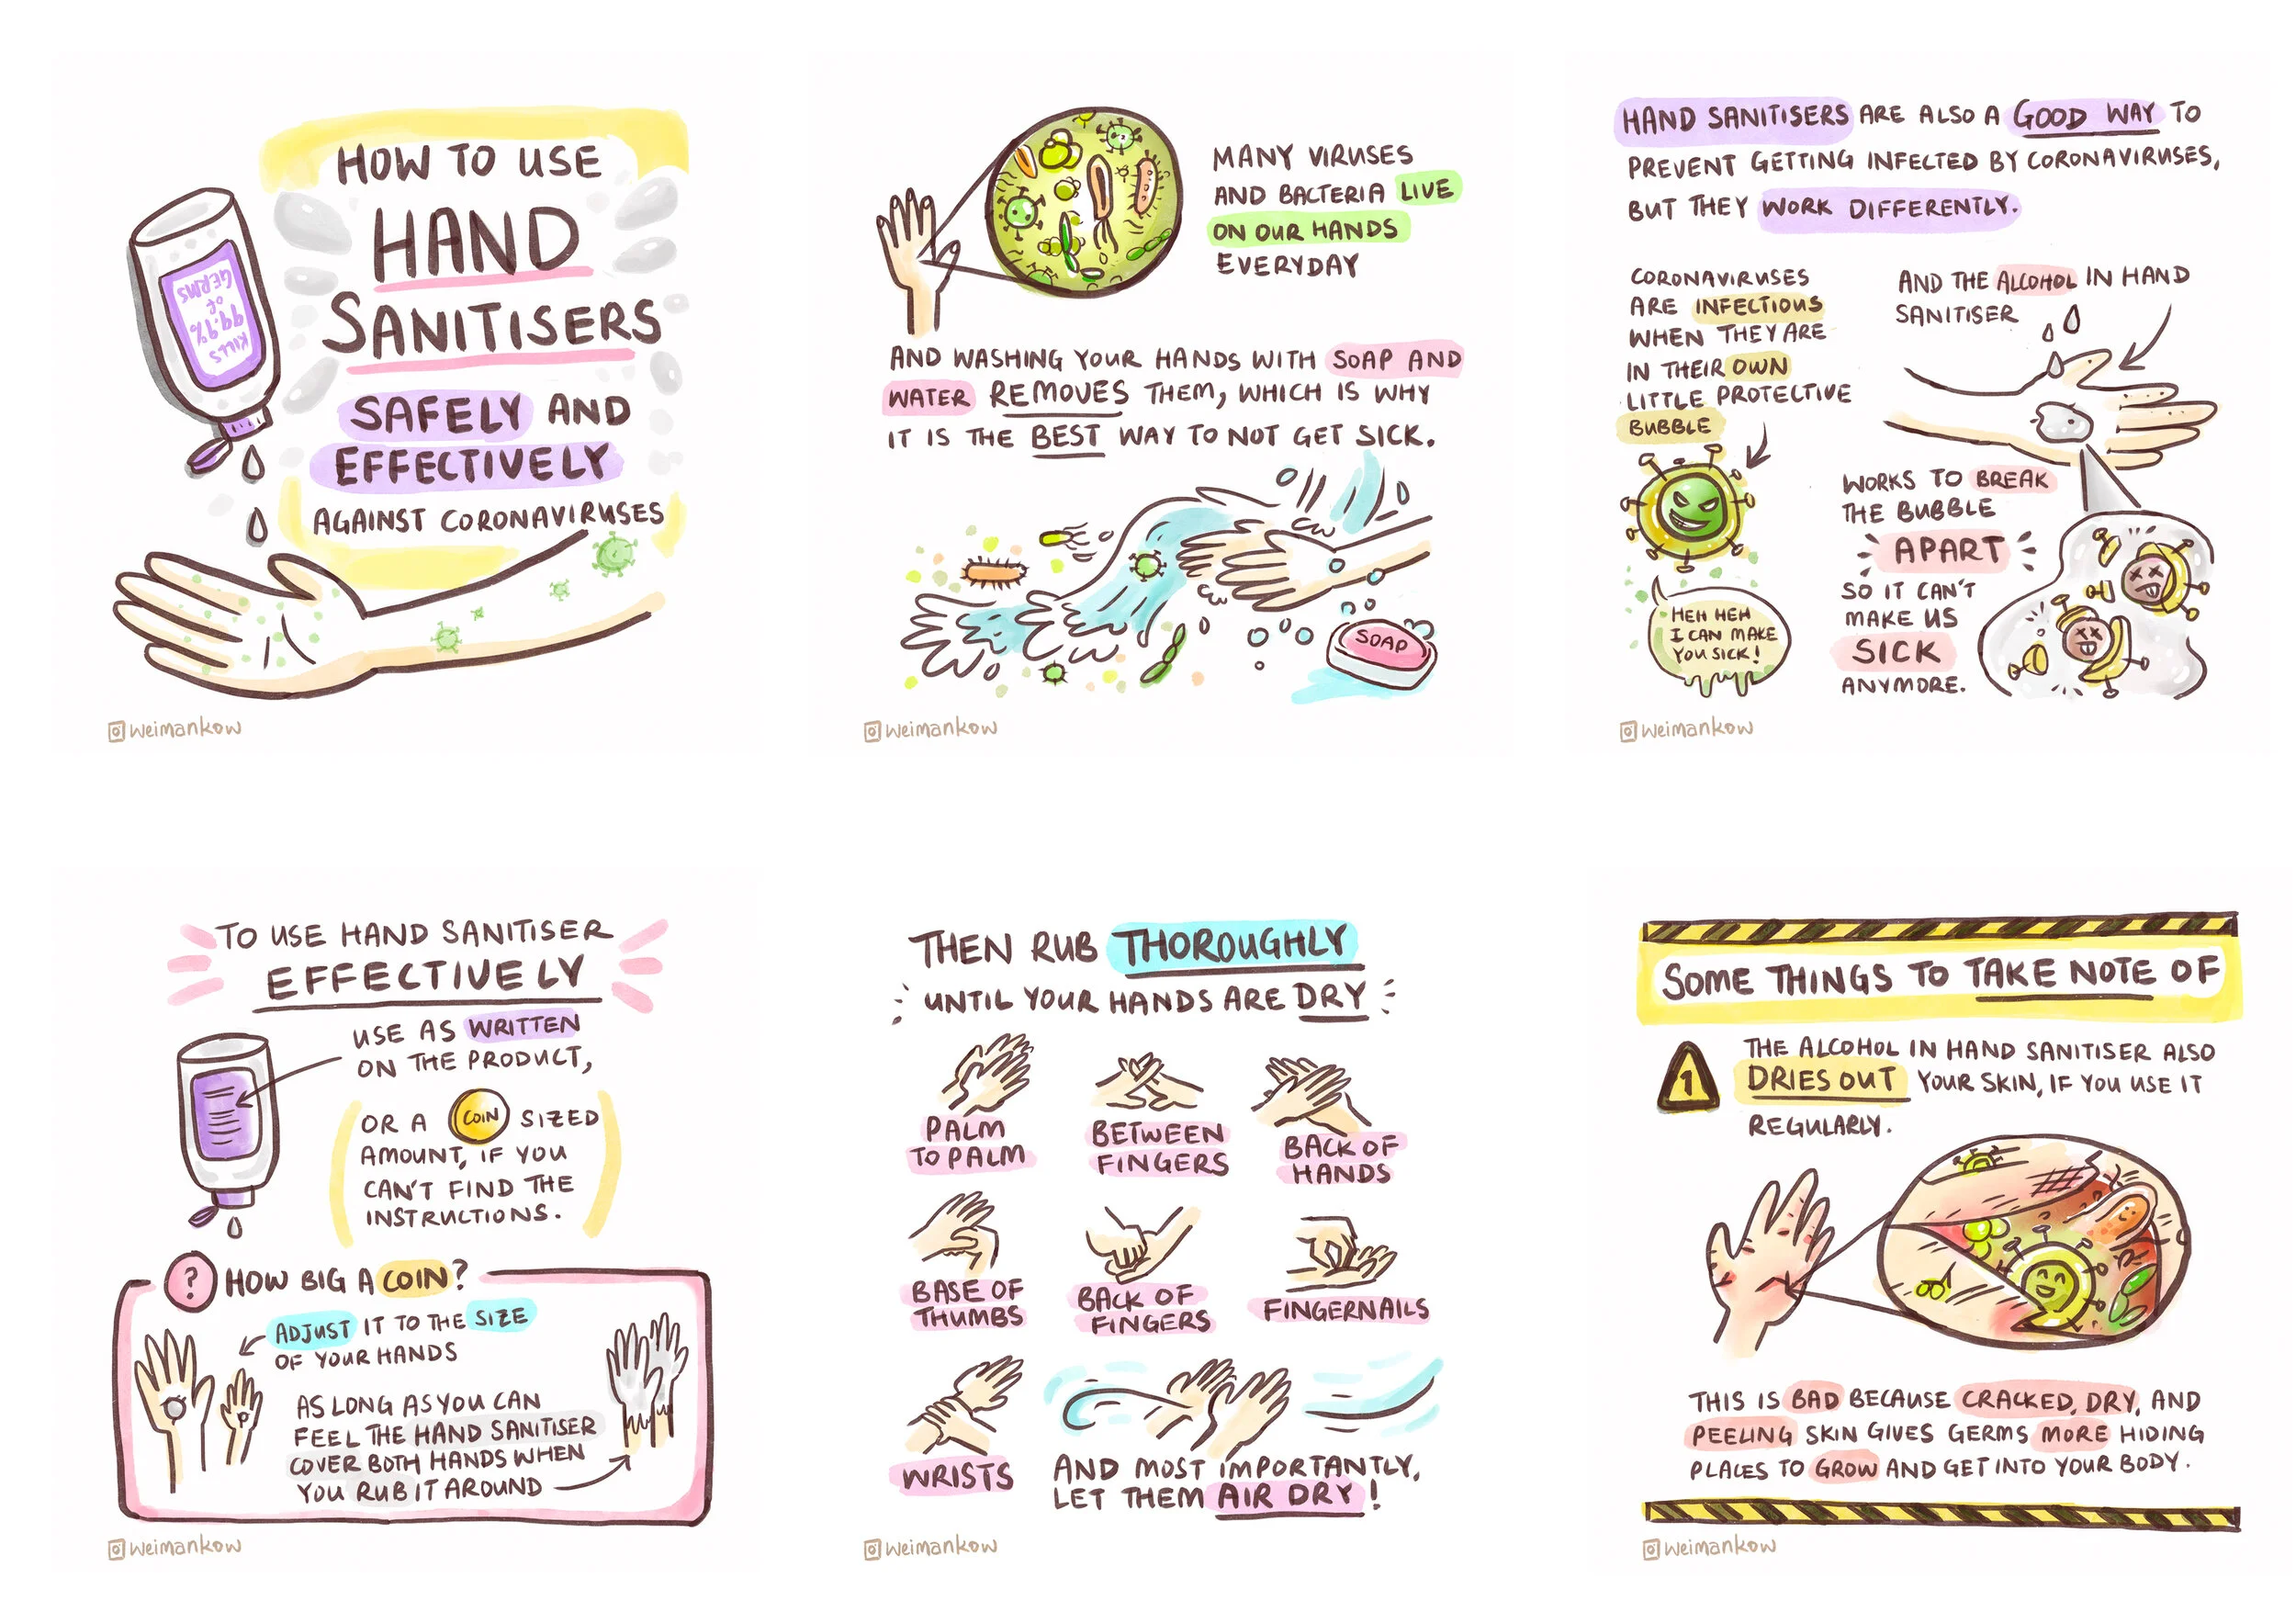 HOW TO USE
HAND
SANITISERS
SAFELY AND
EFFECTIVELY
AGAINST CORONAVIRUSES
KILLS
99.9%
OF
GERMS
weimankow
MANY VIRUSES
AND BACTERIA LIVE
ON OUR HANDS
EVERYDAY
AND WASHING YOUR HANDS WITH SOAP AND
WATER REMOVES THEM, WHICH IS WHY
IT IS THE BEST WAY TO NOT GET SICK.
SOAP
weimankow
HAND SANITISERS ARE ALSO A GOOD WAY TO
PREVENT GETTING INFECTED BY CORONAVIRUSES,
BUT THEY WORK DIFFERENTLY.
CORONAVIRUSES
ARE INFECTIOUS
WHEN THEY ARE
IN THEIR OWN
LITTLE PROTECTIVE
BUBBLE
HEH HEH
I CAN MAKE
YOU SICK!
AND THE ALCOHOL IN HAND
SANITISER
WORKS TO BREAK
THE BUBBLE
APART
SO IT CAN'T
MAKE US
SICK
ANYMORE.
weimankow
TO USE HAND SANITISER
EFFECTIVELY
USE AS WRITTEN
ON THE PRODUCT,
OR A COIN SIZED
AMOUNT, IF YOU
CAN'T FIND THE
INSTRUCTIONS.
? HOW BIG A COIN?
ADJUST IT TO THE SIZE
OF YOUR HANDS
AS LONG AS YOU CAN
FEEL THE HAND SANITISER
COVER BOTH HANDS WHEN
YOU RUB IT AROUND
weimankow
THEN RUB THOROUGHLY
UNTIL YOUR HANDS ARE DRY
PALM
TO PALM
BETWEEN
FINGERS
BACK OF
HANDS
BASE OF
THUMBS
BACK OF
FINGERS
FINGERNAILS
WRISTS
AND MOST IMPORTANTLY,
LET THEM AIR DRY!
weimankow
SOME THINGS TO TAKE NOTE OF
1
THE ALCOHOL IN HAND SANITISER ALSO
DRIES OUT YOUR SKIN, IF YOU USE IT
REGULARLY.
THIS IS BAD BECAUSE CRACKED, DRY, AND
PEELING SKIN GIVES GERMS MORE HIDING
PLACES TO GROW AND GET INTO YOUR BODY.
weimankow